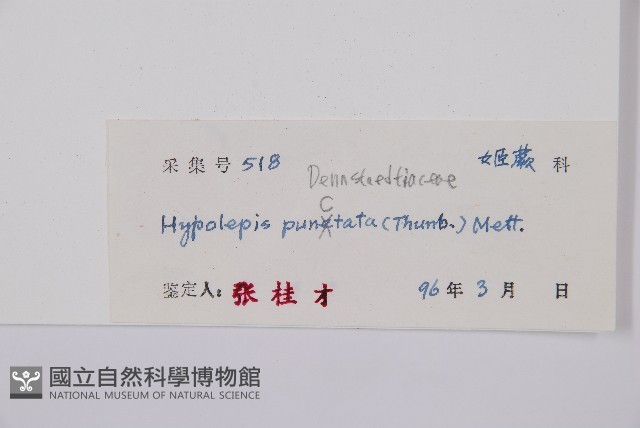 采集号 518 姬蕨 科
Dennstaedtiaceae
C
Hypolepis punctata (Thunb.) Mett.
鉴定人: 张桂才 96年3月 日
國立自然科學博物館
NATIONAL MUSEUM OF NATURAL SCIENCE